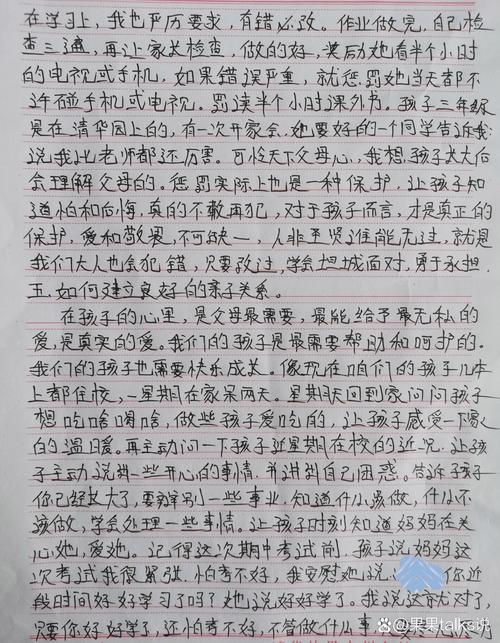 在学习上，我也严厉要求，有错必改。作业做完，自己检
查三遍，再让家长检查，做的好，奖励她看半个小时
的电视或手机，如果错误严重，就惩罚她当天都不
许碰手机或电视。罚读半个小时课外书。孩子三年级
是在清华园上的，有一次开家会，她要好的一个同学告诉我：
说我比老师都还厉害。可怜天下父母心，我想孩子长大后
会理解父母的。惩罚实际上也是一种保护，让孩子知
道怕和后悔，真的不敢再犯，对于孩子而言，才是真正的
保护，爱和敬畏，不可缺一，人非圣贤谁能无过，就是
我们大人也会犯错，只要改过，学会坦诚面对，勇于承担.
五、如何建立良好的亲子关系。
在孩子的心里，是父母最需要，最能给予最无私的
爱，是真实的爱。我们的孩子是最需要帮助和呵护的.
我们的孩子也需要快乐成长。像现在咱们的孩子几本
上都住校，一星期在家呆两天。星期天回到家问问孩子
想吃啥喝啥，做些孩子爱吃的，让孩子感受一下家
的温暖。再主动问一下孩子近星期在校的近况，让孩
子主动说讲一些开心的事情，并讲讲自己困惑。告诉孩子
你已经长大了，要辩别一些事业，知道什么该做，什么不
该做，学会处理一些事情。让孩子时刻知道妈妈在关
心她，爱她。记得这次期中考试前，孩子说妈妈这
次考试我很紧张，怕考不好，我安慰她说， 你近
段时间好好学习了吗？她说好好学了。我说这就对了，
只要你好好学了，还怕考不好，不管做什么事
果果talks说